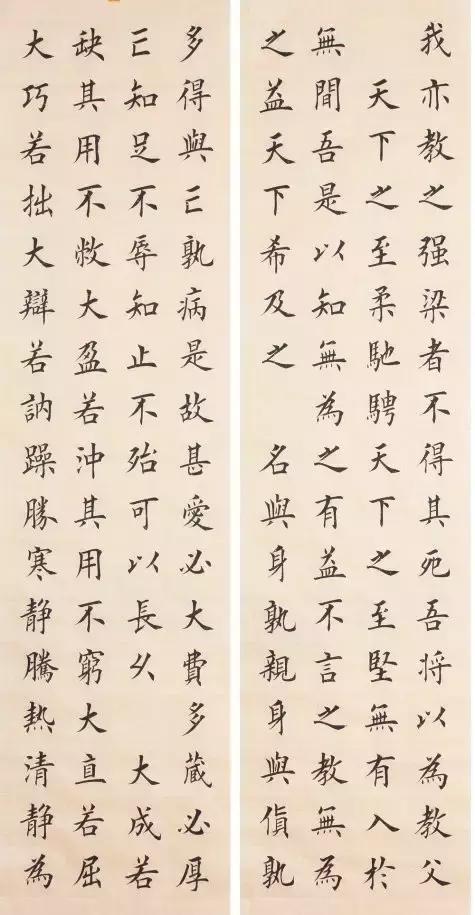 我亦教之强梁者不得其死吾将以為教父
天下之至柔馳騁天下之至堅無有入於
無間吾是以知無為之有益不言之教無為
之益天下希及之 名與身孰親身與貨孰
多得與亡孰病是故甚愛必大費多蔵必厚
亡知足不辱知止不殆可以長久 大成若
缺其用不敝大盈若沖其用不窮大直若屈
大巧若拙大辯若訥躁勝寒静騰熱清静為